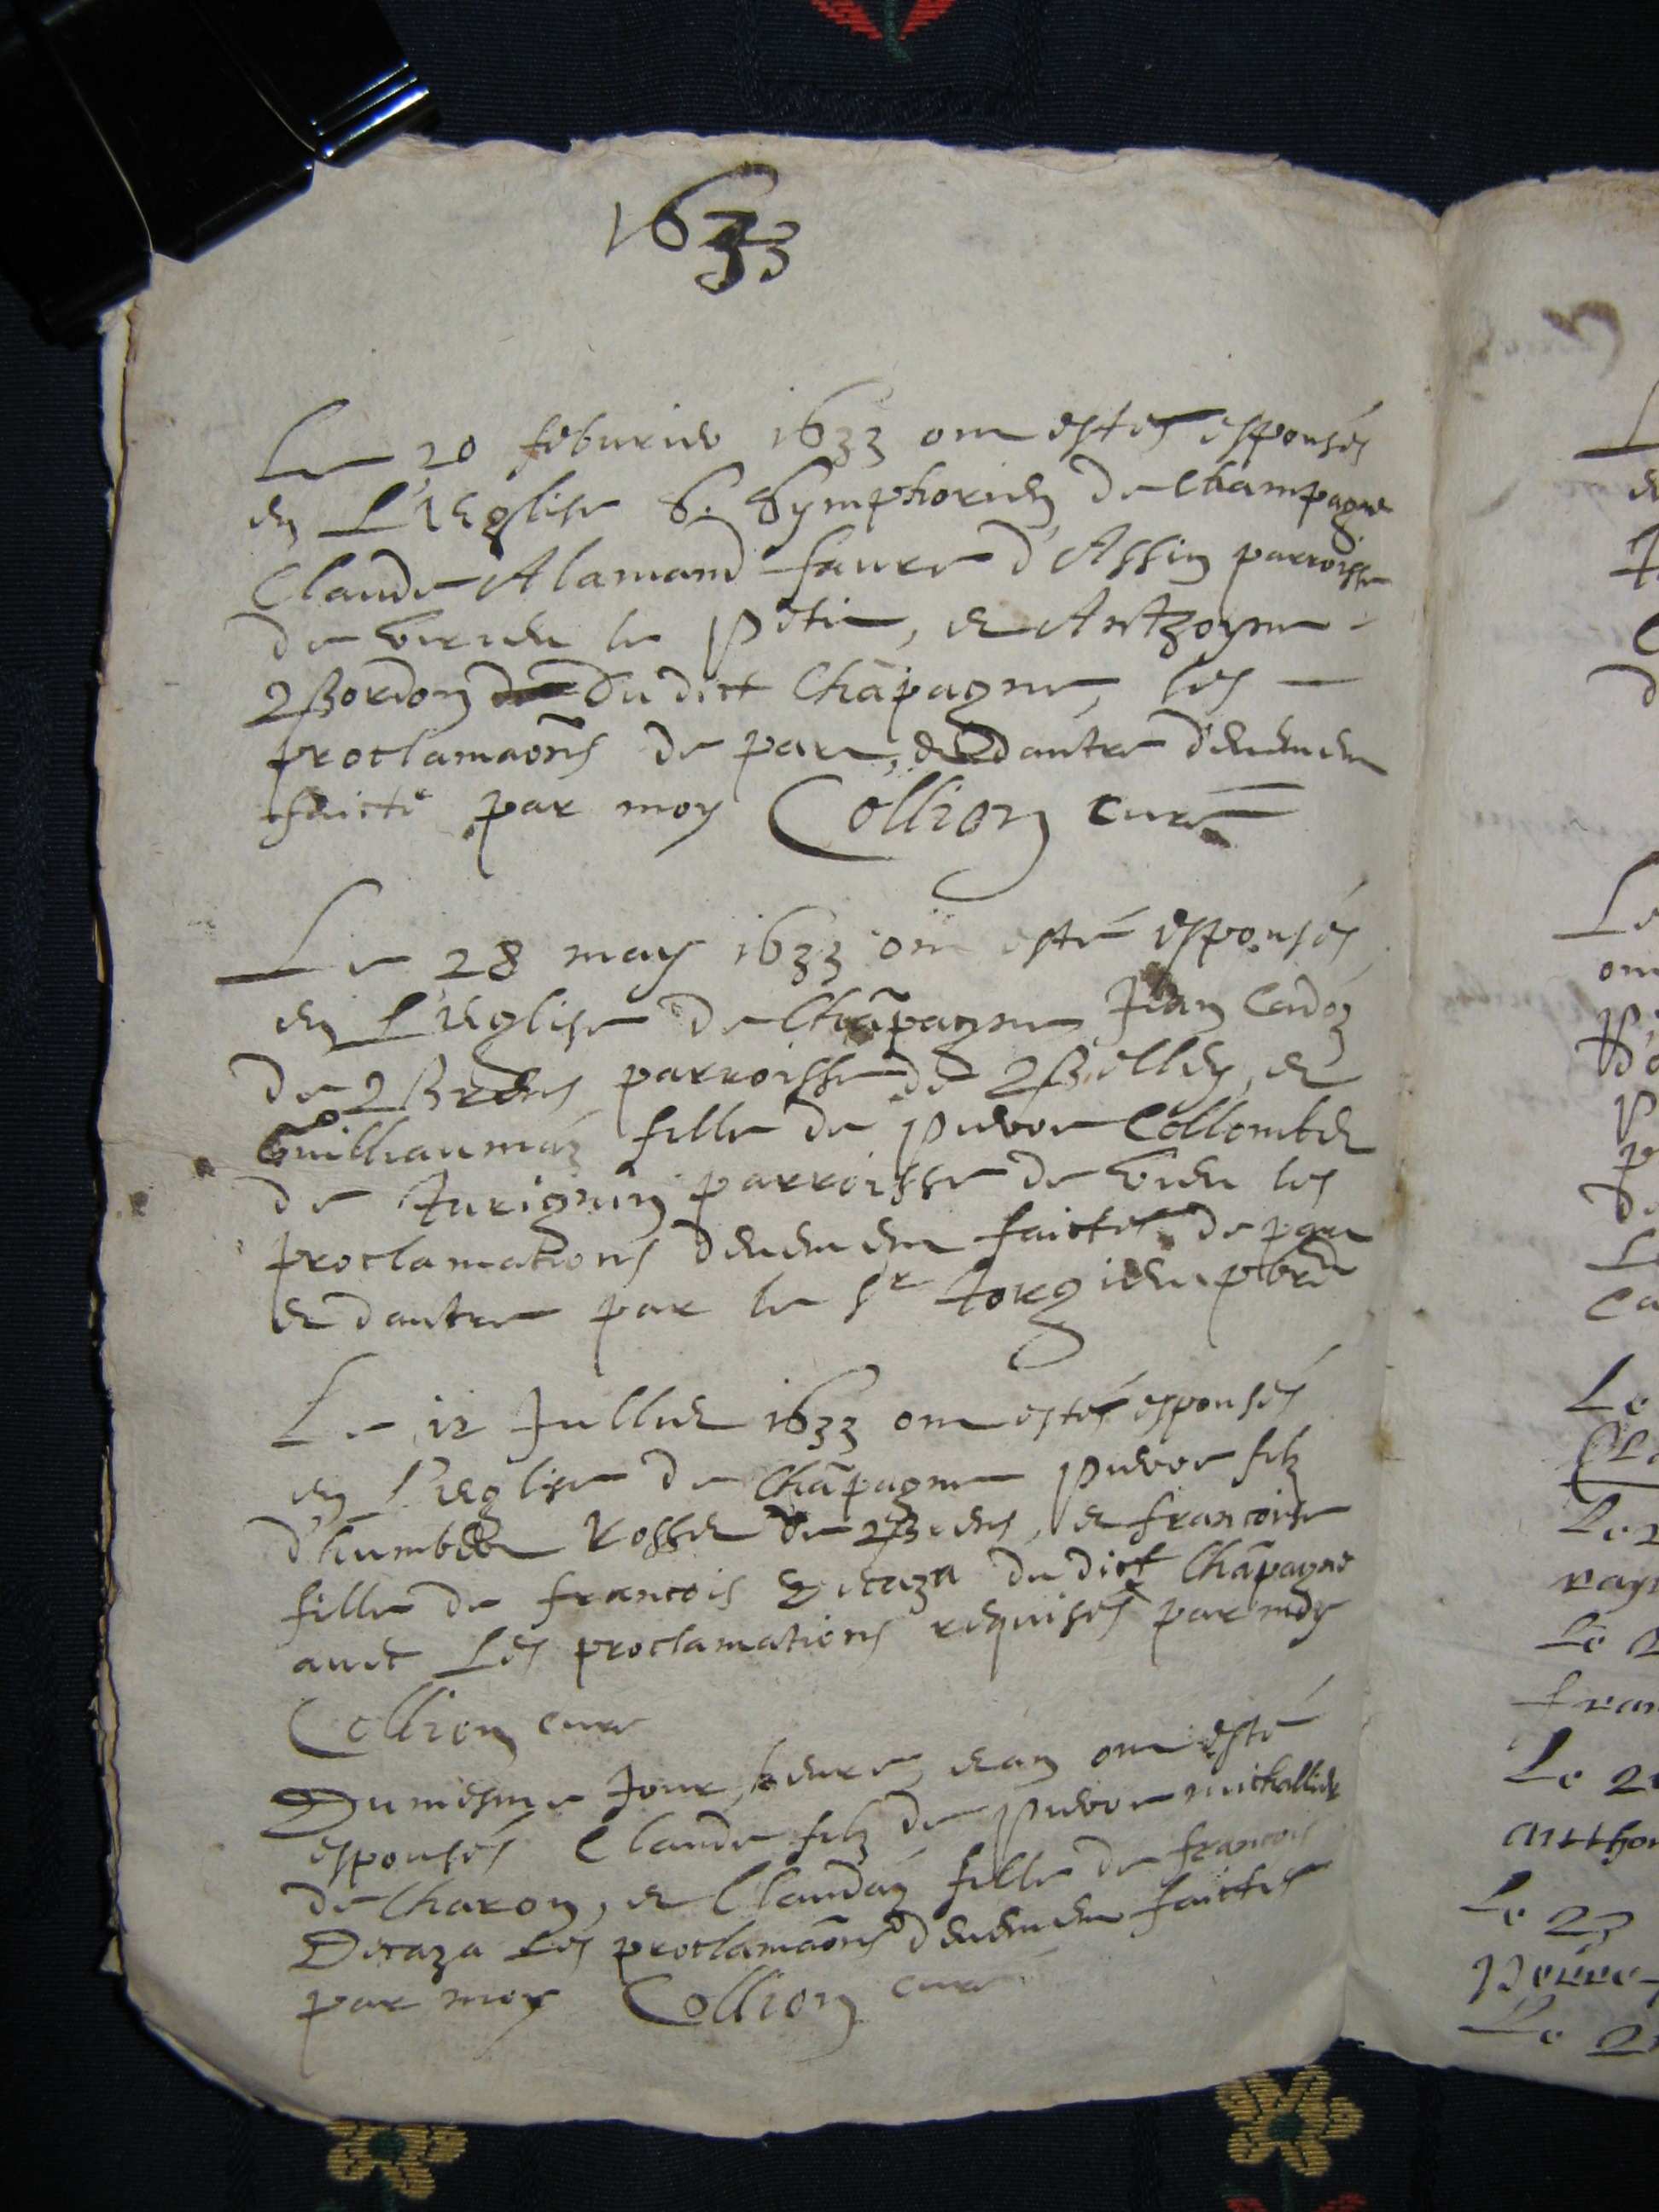 1633
Le 20 feburier 1633 ont estes espousés
en L'Eglise S. Symphorien de Champagne
Claude Alamand faure d'Assin parroisse
de virieu le petit, et Antzoyne
Bordon du dict Chãpagne, les
proclamaõns de part, et dautre deuement
faicte par moy Collion curé
Le 28 may 1633 ont esté espousés
en L'Eglise de Chãpagne Jean Cadoz
de Brens parroisse de Belley, et
Guilliaumaz fille de pierre Collombet
de Turignin parroisse de vieu les
proclamations deuement faictes de part
et dautre par le Sr Jorg pbre
Le 12 Julliet 1633 ont estés espousés
en l'eglise de Chãpagne pierre filz
d'humbert Rosset de Brens, et francoise
fille de francois Decaza du dict Chãpagne
auec Les proclamations requises par moy
Collion curé
Du mesme Jour, heure, et an ont esté
espousés Claude filz de pierre michallier
de Charon, et Claudaz fille de francois
Decaza Les proclamaõns deuement faictes
par moy Collion curé
L
Le
ont
Le
Le
Le 2
fran
Le 2
Anthon
Le 23
pierre
Le 2